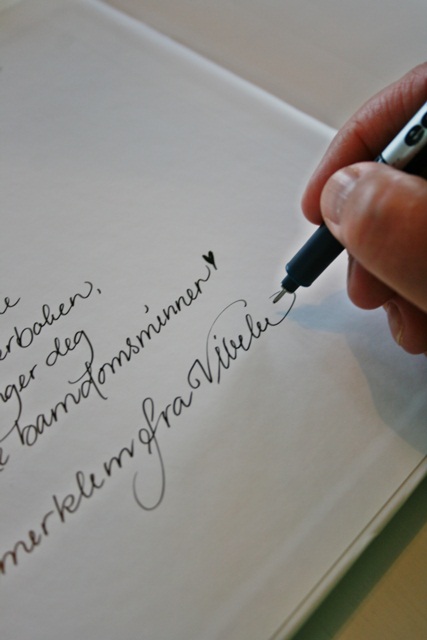 e
erboken,
nger deg
e barndomsminner ♥
merklem fra Vibeke